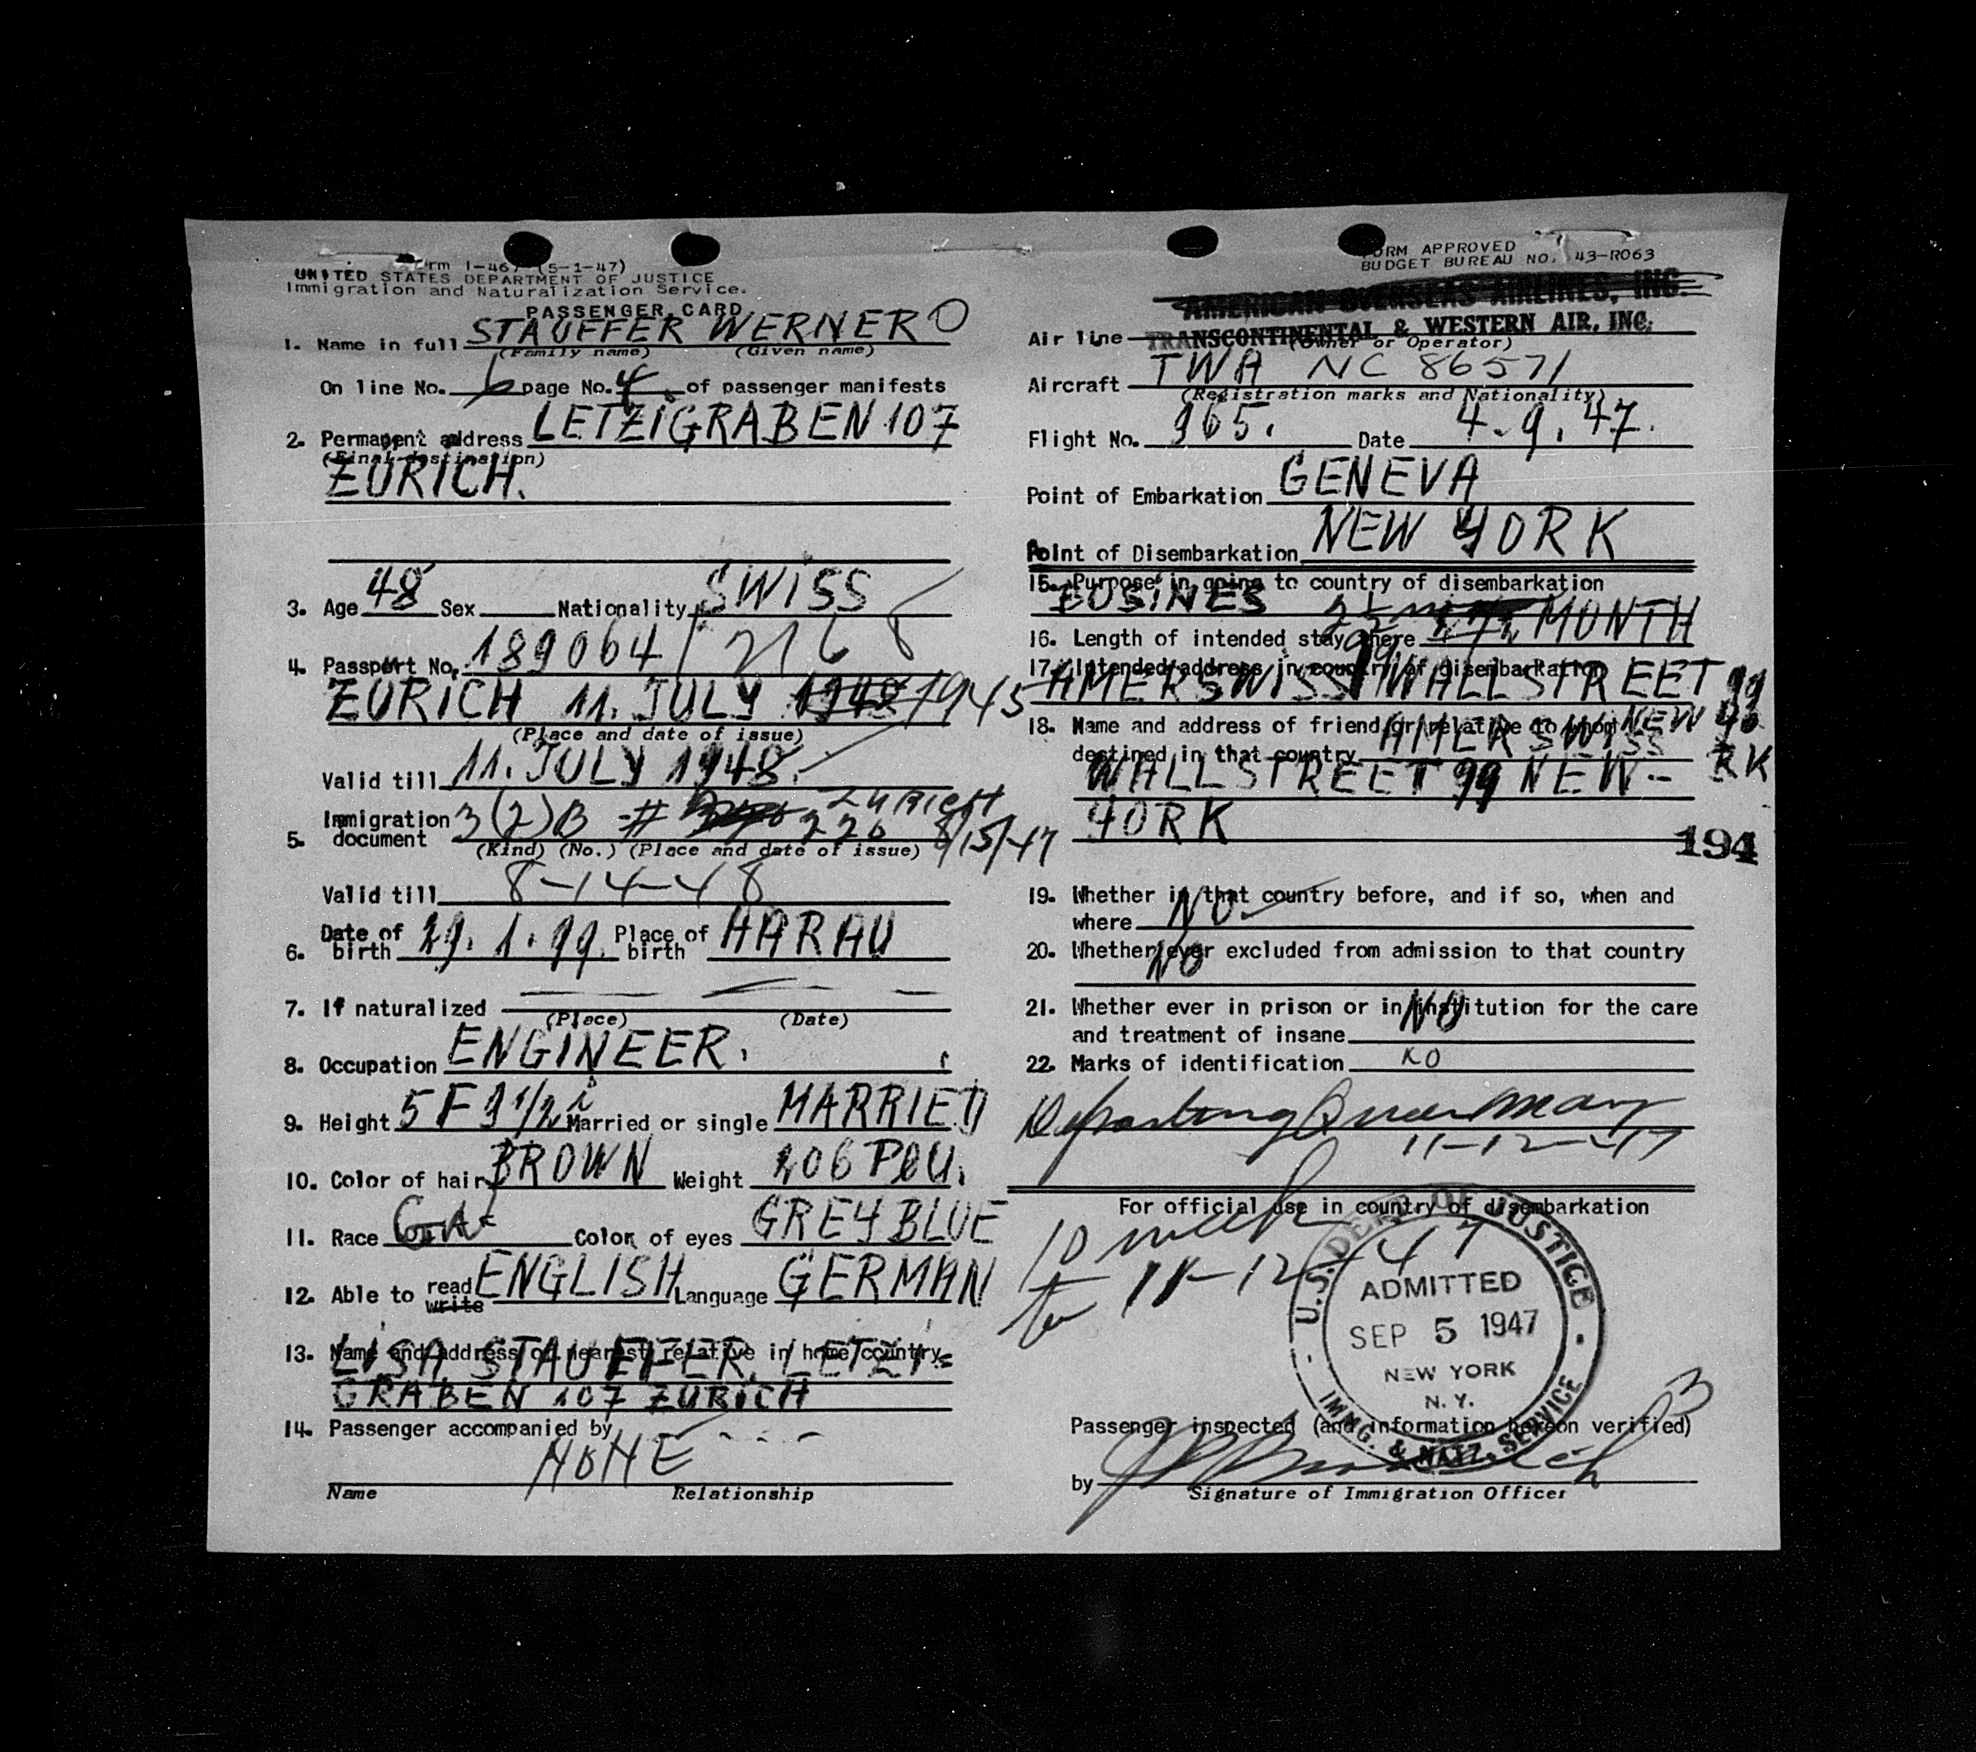 Form I-467 (5-1-47)
UNITED STATES DEPARTMENT OF JUSTICE
Immigration and Naturalization Service.
PASSENGER CARD
1. Name in full STAUFFER WERNER O
(Family name) (Given name)
On line No. 6 page No. 4 of passenger manifests
2. Permanent address LETZIGRABEN 107
(Final destination)
ZÜRICH.
3. Age 48 Sex Nationality SWISS
4. Passport No. 189064 / 216
ZÜRICH 11. JULY 1948 1945
(Place and date of issue)
Valid till 11. JULY 1948.
5. Immigration document 3(2)B # 220 ZURICH 8/15/47
(Kind) (No.) (Place and date of issue)
Valid till 8-14-48
6. Date of birth 29. 1. 99. Place of birth AARAU
7. If naturalized
(Place) (Date)
8. Occupation ENGINEER.
9. Height 5 F 9 1/2 i Married or single MARRIED
10. Color of hair BROWN Weight 206 POU.
11. Race Color of eyes GREY BLUE
12. Able to read write ENGLISH Language GERMAN
13. Name and address of nearest relative in home country
LISA STAUFFER, LETZI-
GRABEN 107 ZÜRICH
14. Passenger accompanied by
NONE
Name Relationship
FORM APPROVED
BUDGET BUREAU NO. 43-R063
AMERICAN OVERSEAS AIRLINES, INC.
Air line TRANSCONTINENTAL & WESTERN AIR, INC.
(Owner or Operator)
Aircraft TWA NC 86571
(Registration marks and Nationality)
Flight No. 965. Date 4. 9. 47.
Point of Embarkation GENEVA
Point of Disembarkation NEW YORK
15. Purpose in going to country of disembarkation
BUSINES
16. Length of intended stay there 2½ MONTH
17. Intended address in country of disembarkation
AMERSWISS WALLSTREET 99
NEW YORK
18. Name and address of friend or relative to whom
destined in that country AMERSWISS
WALLSTREET 99 NEW-
YORK
194
19. Whether in that country before, and if so, when and
where NO
20. Whether ever excluded from admission to that country
NO
21. Whether ever in prison or in institution for the care
and treatment of insane NO
22. Marks of identification NO
Departing Queen Mary
11-12-47
For official use in country of disembarkation
10 week
to 11-12-47
U.S. DEPT. OF JUSTICE
ADMITTED
SEP 5 1947
NEW YORK
N. Y.
IMMG. & NATZ. SERVICE
3
Passenger inspected (and information hereon verified)
by
Signature of Immigration Officer